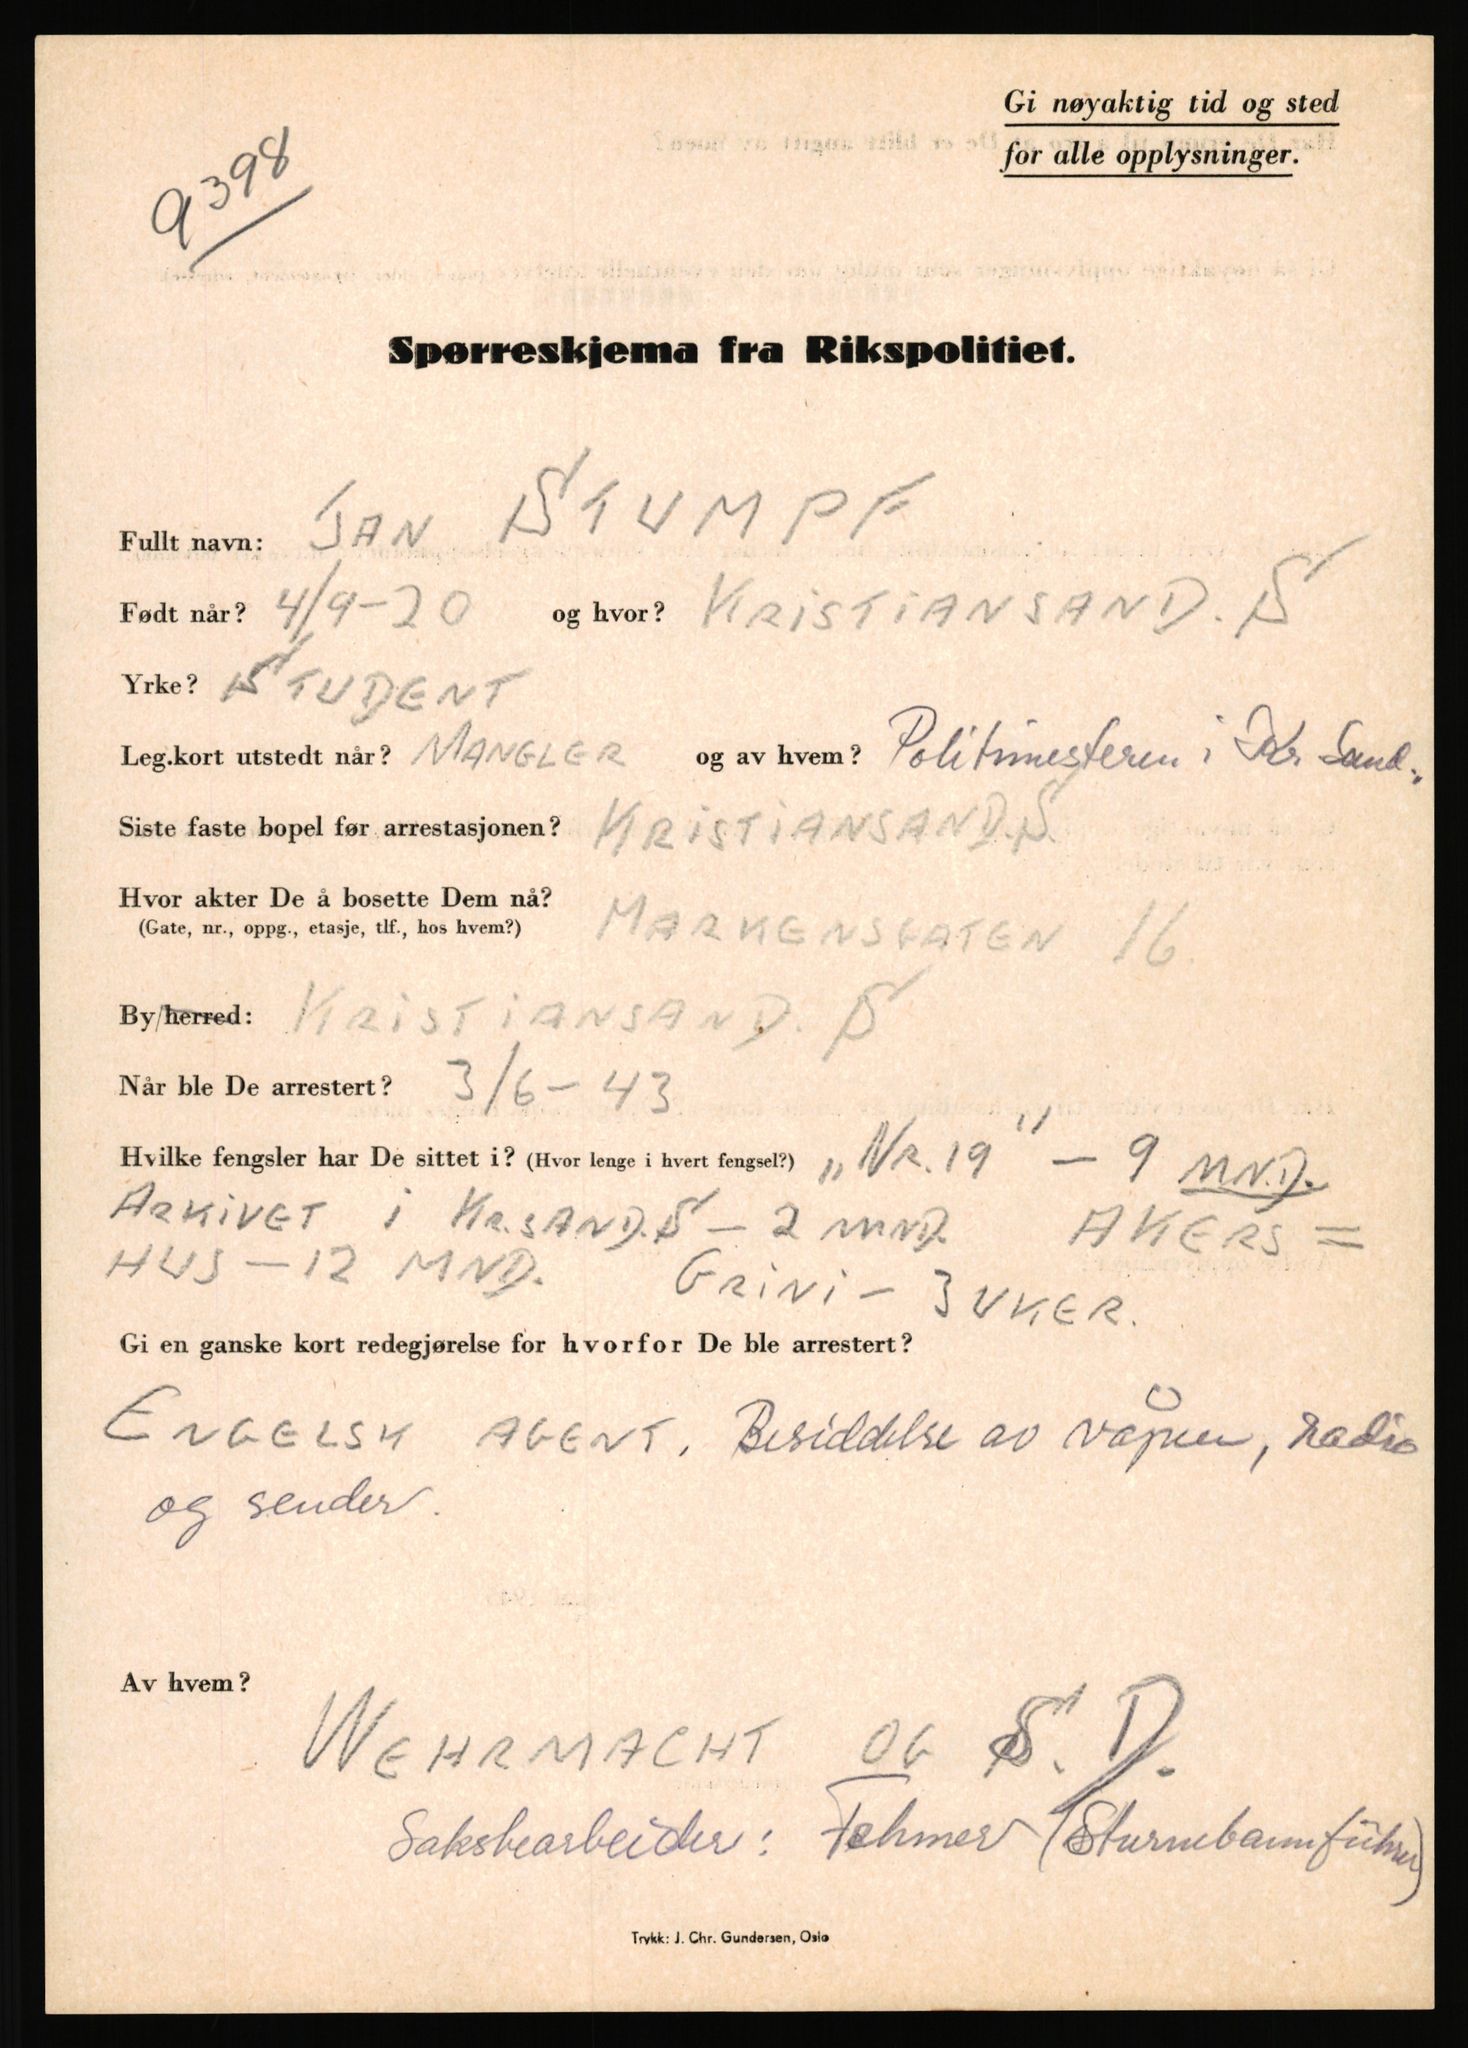 9398
Gi nøyaktig tid og sted
for alle opplysninger.
Spørreskjema fra Rikspolitiet.
Fullt navn: JAN STUMPF
Født når? 4/9-20 og hvor? KRISTIANSAND. S
Yrke? STUDENT
Leg.kort utstedt når? MANGLER og av hvem? Politimesteren i Kr Sand.
Siste faste bopel før arrestasjonen? KRISTIANSAND. S.
Hvor akter De å bosette Dem nå?
(Gate, nr., oppg., etasje, tlf., hos hvem?) MARKENSGATEN 16.
By/herred: KRISTIANSAND. S
Når ble De arrestert? 3/6-43
Hvilke fengsler har De sittet i? (Hvor lenge i hvert fengsel?) „NR. 19" - 9 MND.
ARKIVET i KR.SAND.S - 2 MND. AKERS=
HUS - 12 MND. GRINI - 3 UKER.
Gi en ganske kort redegjørelse for hvorfor De ble arrestert?
ENGELSK AGENT. Besiddelse av våpen, radio
og sender.
Av hvem?
WEHRMACHT OG S.D.
Saksbearbeider: Fehmer (Sturmbannführer)
Trykk: J. Chr. Gundersen, Oslo